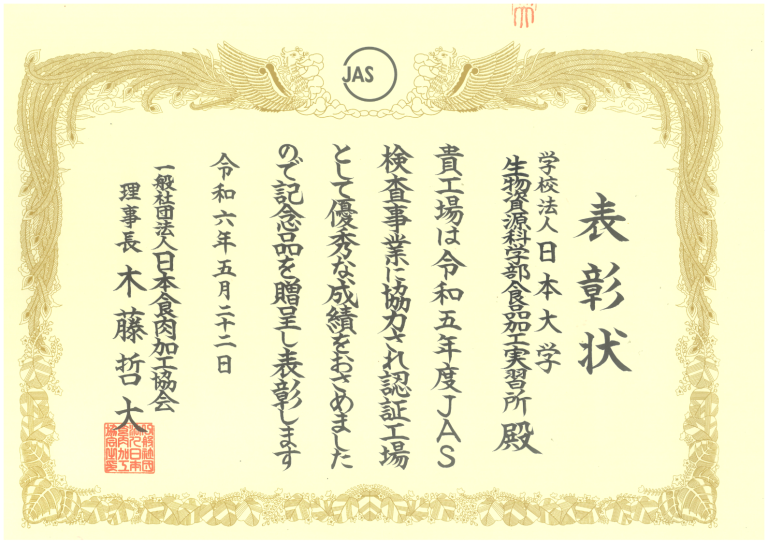 JAS
表彰状
学校法人日本大学
生物資源科学部食品加工実習所 殿
貴工場は令和五年度JAS
検査事業に協力され認証工場
として優秀な成績をおさめました
ので記念品を贈呈し表彰します
令和六年五月二十二日
一般社団法人日本食肉加工協会
理事長 木藤哲大